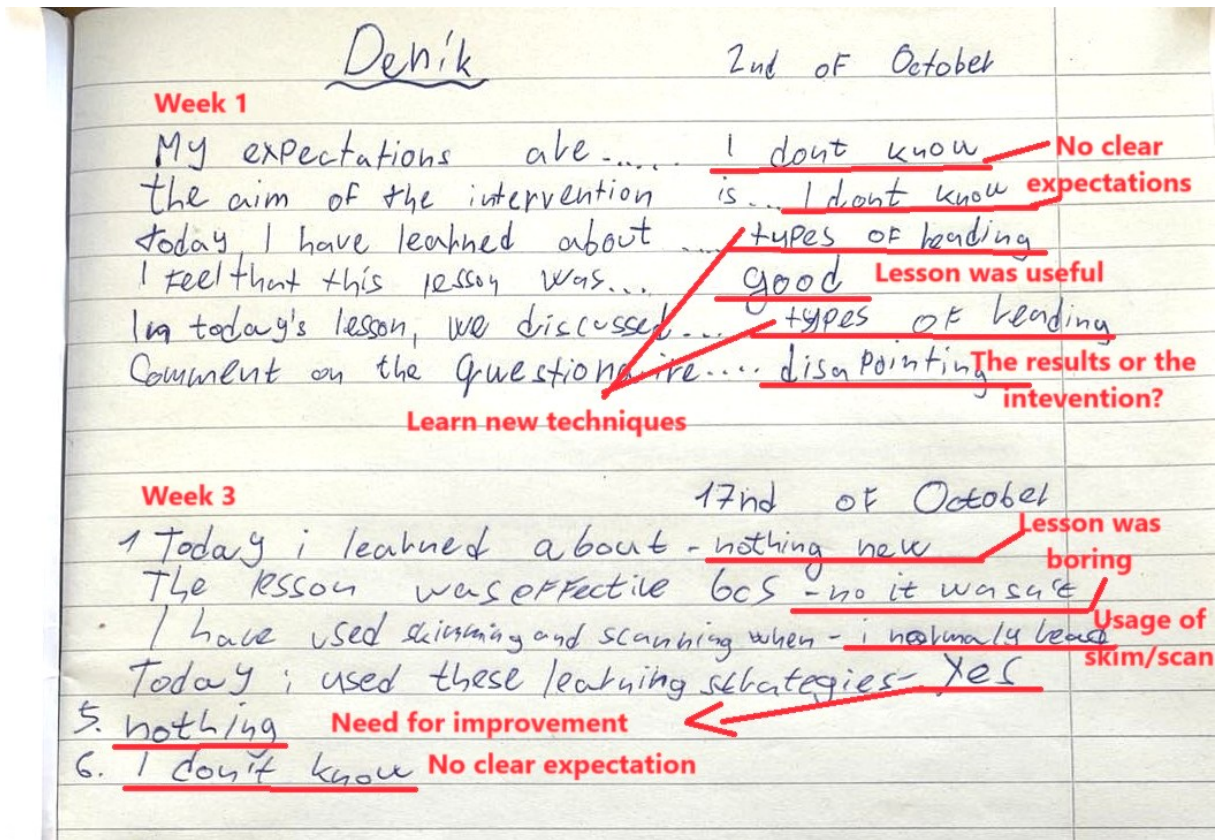 Deník 2nd of October
Week 1
My expectations are..... I dont know No clear
the aim of the intervention is... I dont know expectations
today I have learned about .... types of reading
I feel that this lesson was... good Lesson was useful
In today's lesson, we discussed.... types of reading
Comment on the Questionaire.... disapointing The results or the
intevention?
Learn new techniques
Week 3 17nd of October
1 Today i learned about - nothing new Lesson was
boring
The lesson was effective bcs - no it wasn't
I have used skimming and scanning when - i normaly read Usage of
skim/scan
Today i used these learning strategies - Yes
5. nothing Need for improvement
6. I don't know No clear expectation